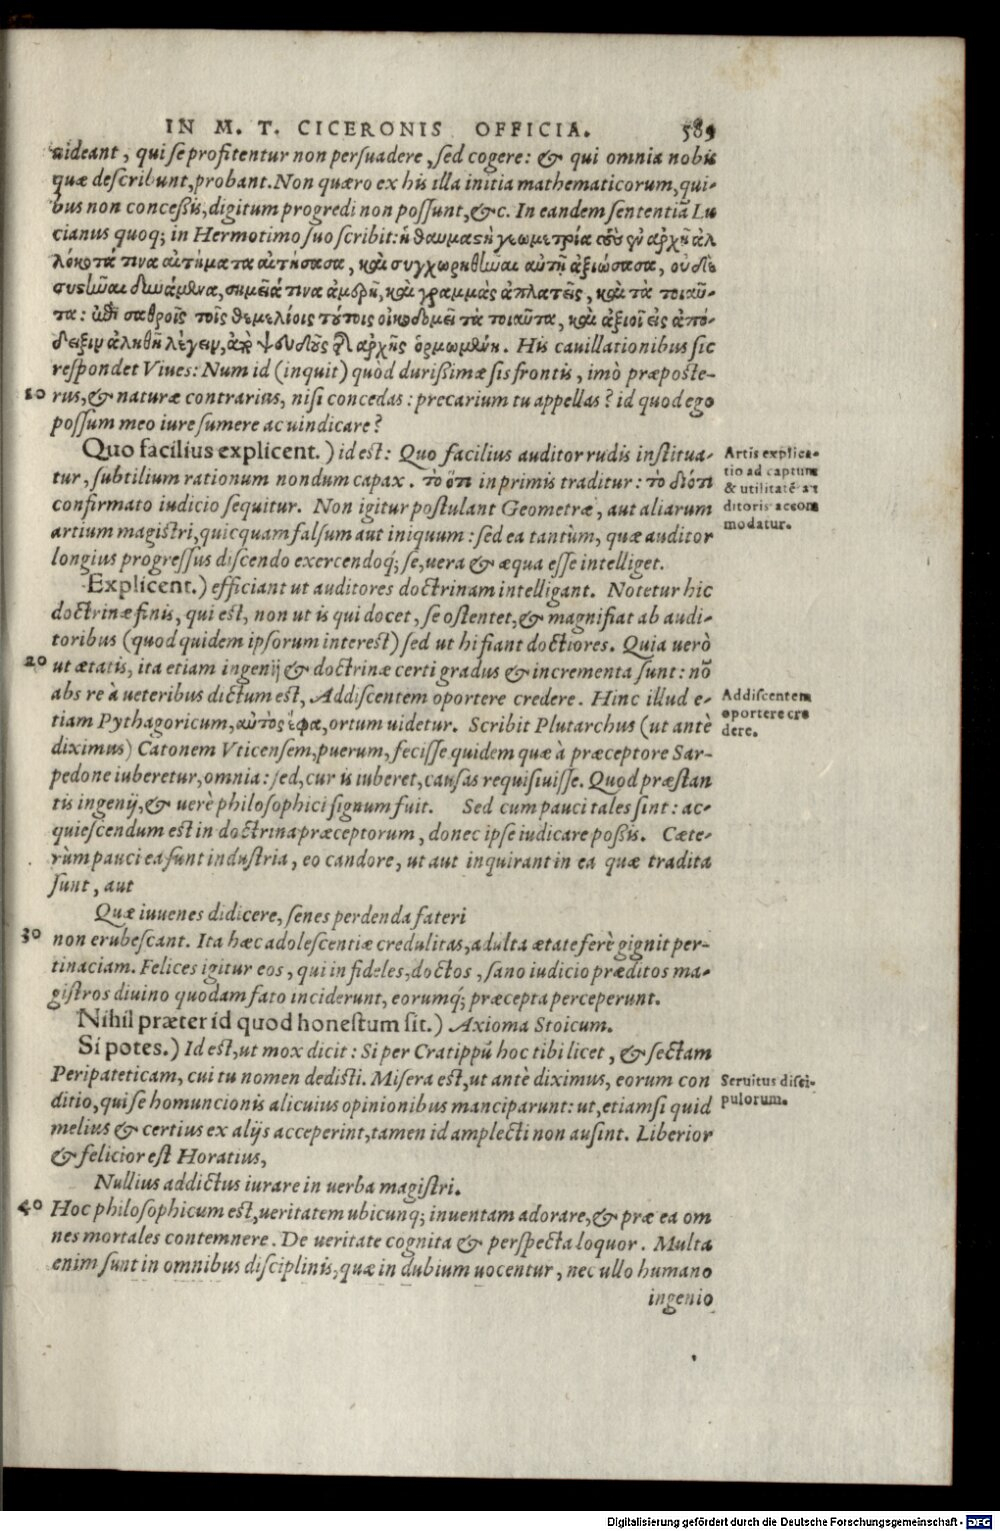 IN M. T. CICERONIS OFFICIA. 589
uideant, qui se profitentur non persuadere, sed cogere: & qui omnia nobis
quæ describunt, probant. Non quæro ex his illa initia mathematicorum, qui-
bus non conceßis, digitum progredi non possunt, &c. In eandem sententiã Lu
cianus quoq; in Hermotimo suo scribit: ἡ θαυμαστὴ γεωμετρία
λόκοτά τινα αἰτήματα αἰτήσασα, καὶ συγχωρηθῆναι αὐτῇ ἀξιώσασα, οὐδὲ
συστῆναι δυνάμενα, σημεῖά τινα ἀμερῆ, καὶ γραμμὰς ἀπλατεῖς, καὶ τὰ τοιαῦ-
τα: ἐπὶ σαθροῖς τοῖς θεμελίοις τούτοις οἰκοδομεῖ τὰ τοιαῦτα, καὶ ἀξιοῖ εἰς ἀπό-
δειξιν ἀληθῆ λέγειν, ἀπὸ ψευδοῦς τῆς ἀρχῆς ὁρμωμένη. His cauillationibus sic
respondet Viues: Num id (inquit) quòd durißimæ sis frontis, imò præposte-
10 rus, & naturæ contrarius, nisi concedas: precarium tu appellas? id quod ego
possum meo iure sumere ac uindicare?
Quo facilius explicent.) id est: Quo facilius auditor rudis instituа-
tur, subtilium rationum nondum capax. τὸ ὅτι inprimis traditur: τὸ διότι
confirmato iudicio sequitur. Non igitur postulant Geometræ, aut aliarum
artium magistri, quicquam falsum aut iniquum: sed ea tantùm, quæ auditor
longius progressus discendo exercendoq́; se, uera & æqua esse intelliget.
Artis explica-
tio ad captum
& utilitatẽ au
ditoris accom
modatur.
Explicent.) efficiant ut auditores doctrinam intelligant. Notetur hic
doctrinæ finis, qui est, non ut is qui docet, se ostentet, & magnifiat ab audi-
toribus (quod quidem ipsorum interest) sed ut hi fiant doctiores. Quia uerò
20 ut ætatis, ita etiam ingenij & doctrinæ certi gradus & incrementa sunt: nõ
abs re à ueteribus dictum est, Addiscentem oportere credere. Hinc illud e-
tiam Pythagoricum, αὐτὸς ἔφα, ortum uidetur. Scribit Plutarchus (ut antè
diximus) Catonem Vticensem, puerum, fecisse quidem quæ à præceptore Sar-
pedone iuberetur, omnia: sed, cur is iuberet, causas requisiuisse. Quod præstan
tis ingenij, & uerè philosophici signum fuit. Sed cum pauci tales sint: ac-
quiescendum est in doctrina præceptorum, donec ipse iudicare poßis. Cæte-
rùm pauci ea sunt industria, eo candore, ut aut inquirant in ea quæ tradita
sunt, aut
Addiscentem
oportere cre
dere.
Quæ iuuenes didicere, senes perdenda fateri
30 non erubescant. Ita hæc adolescentiæ credulitas, adulta ætate ferè gignit per-
tinaciam. Felices igitur eos, qui in fideles, doctos, sano iudicio præditos ma-
gistros diuino quodam fato inciderunt, eorumq́; præcepta perceperunt.
Nihil præter id quod honestum sit.) Axioma Stoicum.
Si potes.) Id est, ut mox dicit: Si per Cratippũ hoc tibi licet, & sectam
Peripateticam, cui tu nomen dedisti. Misera est, ut antè diximus, eorum con
ditio, qui se homuncionis alicuius opinionibus manciparunt: ut, etiamsi quid
melius & certius ex alijs acceperint, tamen id amplecti non ausint. Liberior
& felicior est Horatius,
Seruitus disci-
pulorum.
Nullius addictus iurare in uerba magistri.
40 Hoc philosophicum est, ueritatem ubicunq; inuentam adorare, & præ ea om
nes mortales contemnere. De ueritate cognita & perspecta loquor. Multa
enim sunt in omnibus disciplinis, quæ in dubium uocentur, nec ullo humano
ingenio
Digitalisierung gefördert durch die Deutsche Forschungsgemeinschaft - DFG